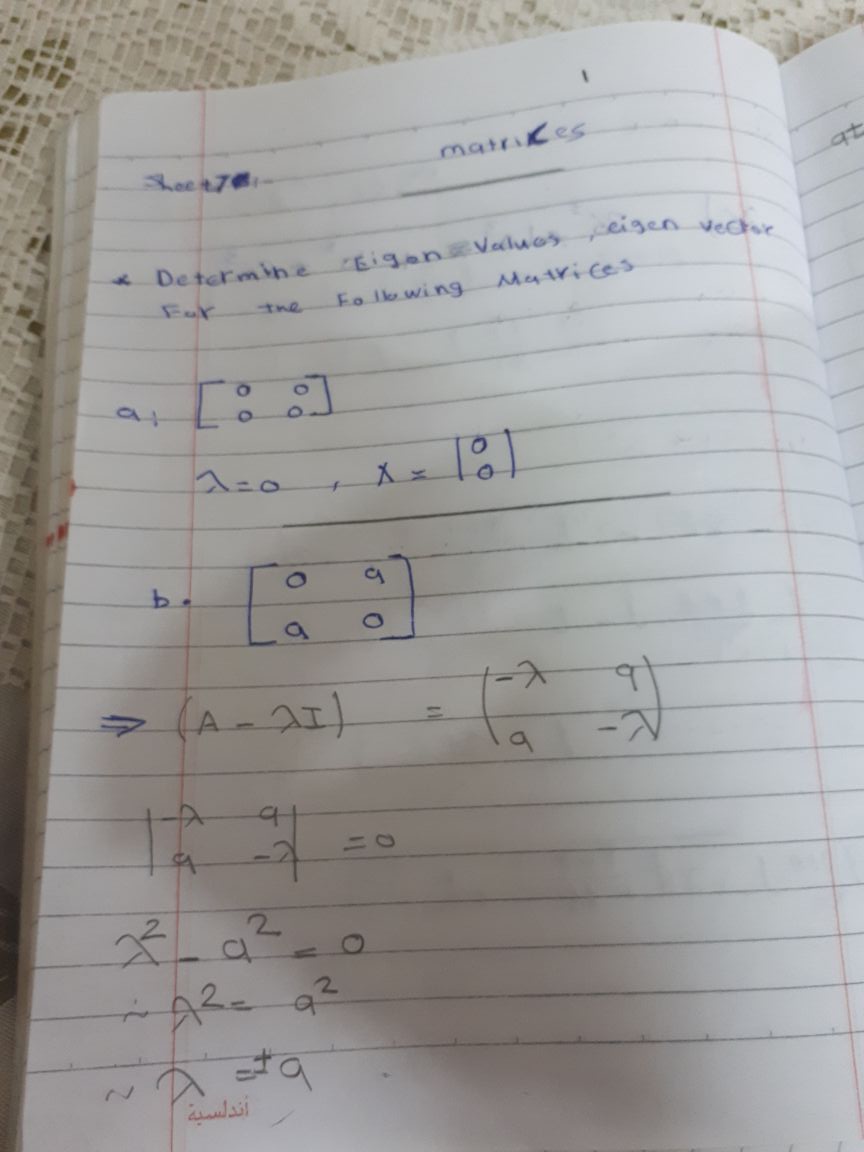 1
matrices
Sheet 7
* Determine Eigen Values, eigen vector
For the Following Matrices
a, [0 0
0 0]
λ=0 , X = [0
0]
b. [0 a
a 0]
⇒ (A - λI) = (-λ a
a -λ)
|-λ a
a -λ| =0
λ² - a² = 0
~ λ² = a²
~ λ = ±a
أندلسية